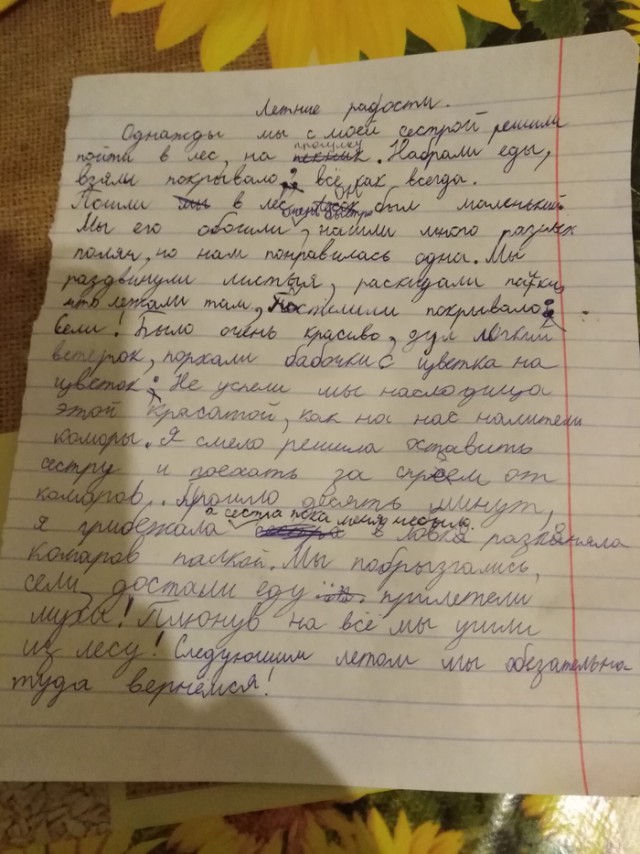 Летние радости.
Однажды мы с моей сестрой решили
прогулку
пойти в лес, на пекник. Набрали еды,
взяли покрывало; всё как всегда.
Пошли мы в лес, был маленький.
Мы его обошли, нашли много разных
полян, но нам понравилась одна. Мы
раздвинули листья, раскидали палки,
что лежали там, Постелили покрывало;
Сели! Было очень красиво, дул лёгкий
ветерок, порхали бабочки с цветка на
цветок; Не успели мы наслодица
этой красатой, как на нас налители
коморы. Я смело решила оставить
сестру и поехать за спреем от
комаров. Прошло десять минут,
а сестра пока меня не было.
я прибежала сестра ловка разгоняла
комаров палкой. Мы побрызгались,
сели, достали еду прилетели
мухи! Плюнув на всё мы ушли
из лесу! Следующим летом мы обезательна
туда вернемся!